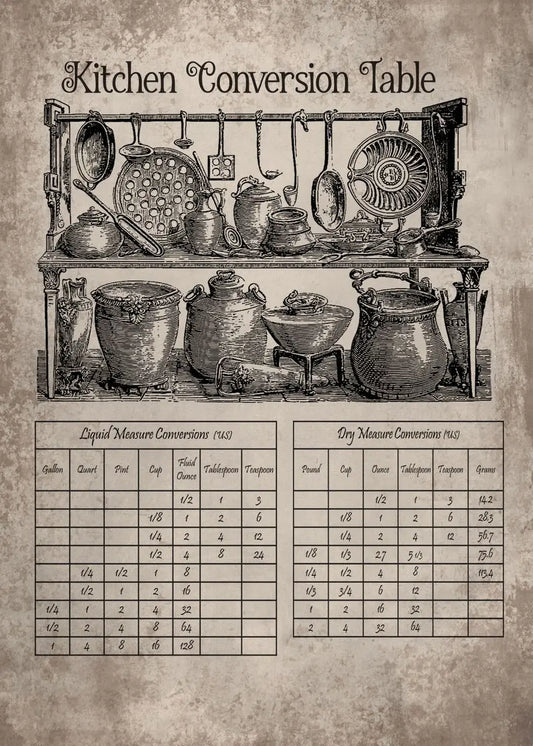 Kitchen Conversion Table
Liquid Measure Conversions (US)
Gallon Quart Pint Cup Fluid Ounce Tablespoon Teaspoon
1/2 1 3
1/8 1 2 6
1/4 2 4 12
1/2 4 8 24
1/4 1/2 1 8
1/2 1 2 16
1/4 1 2 4 32
1/2 2 4 8 64
1 4 8 16 128
Dry Measure Conversions (US)
Pound Cup Ounce Tablespoon Teaspoon Grams
1/2 1 3 14.2
1/8 1 2 6 28.3
1/4 2 4 12 56.7
1/8 1/3 2.7 5 1/3 75.6
1/4 1/2 4 8 113.4
1/3 3/4 6 12
1 2 16 32
2 4 32 64